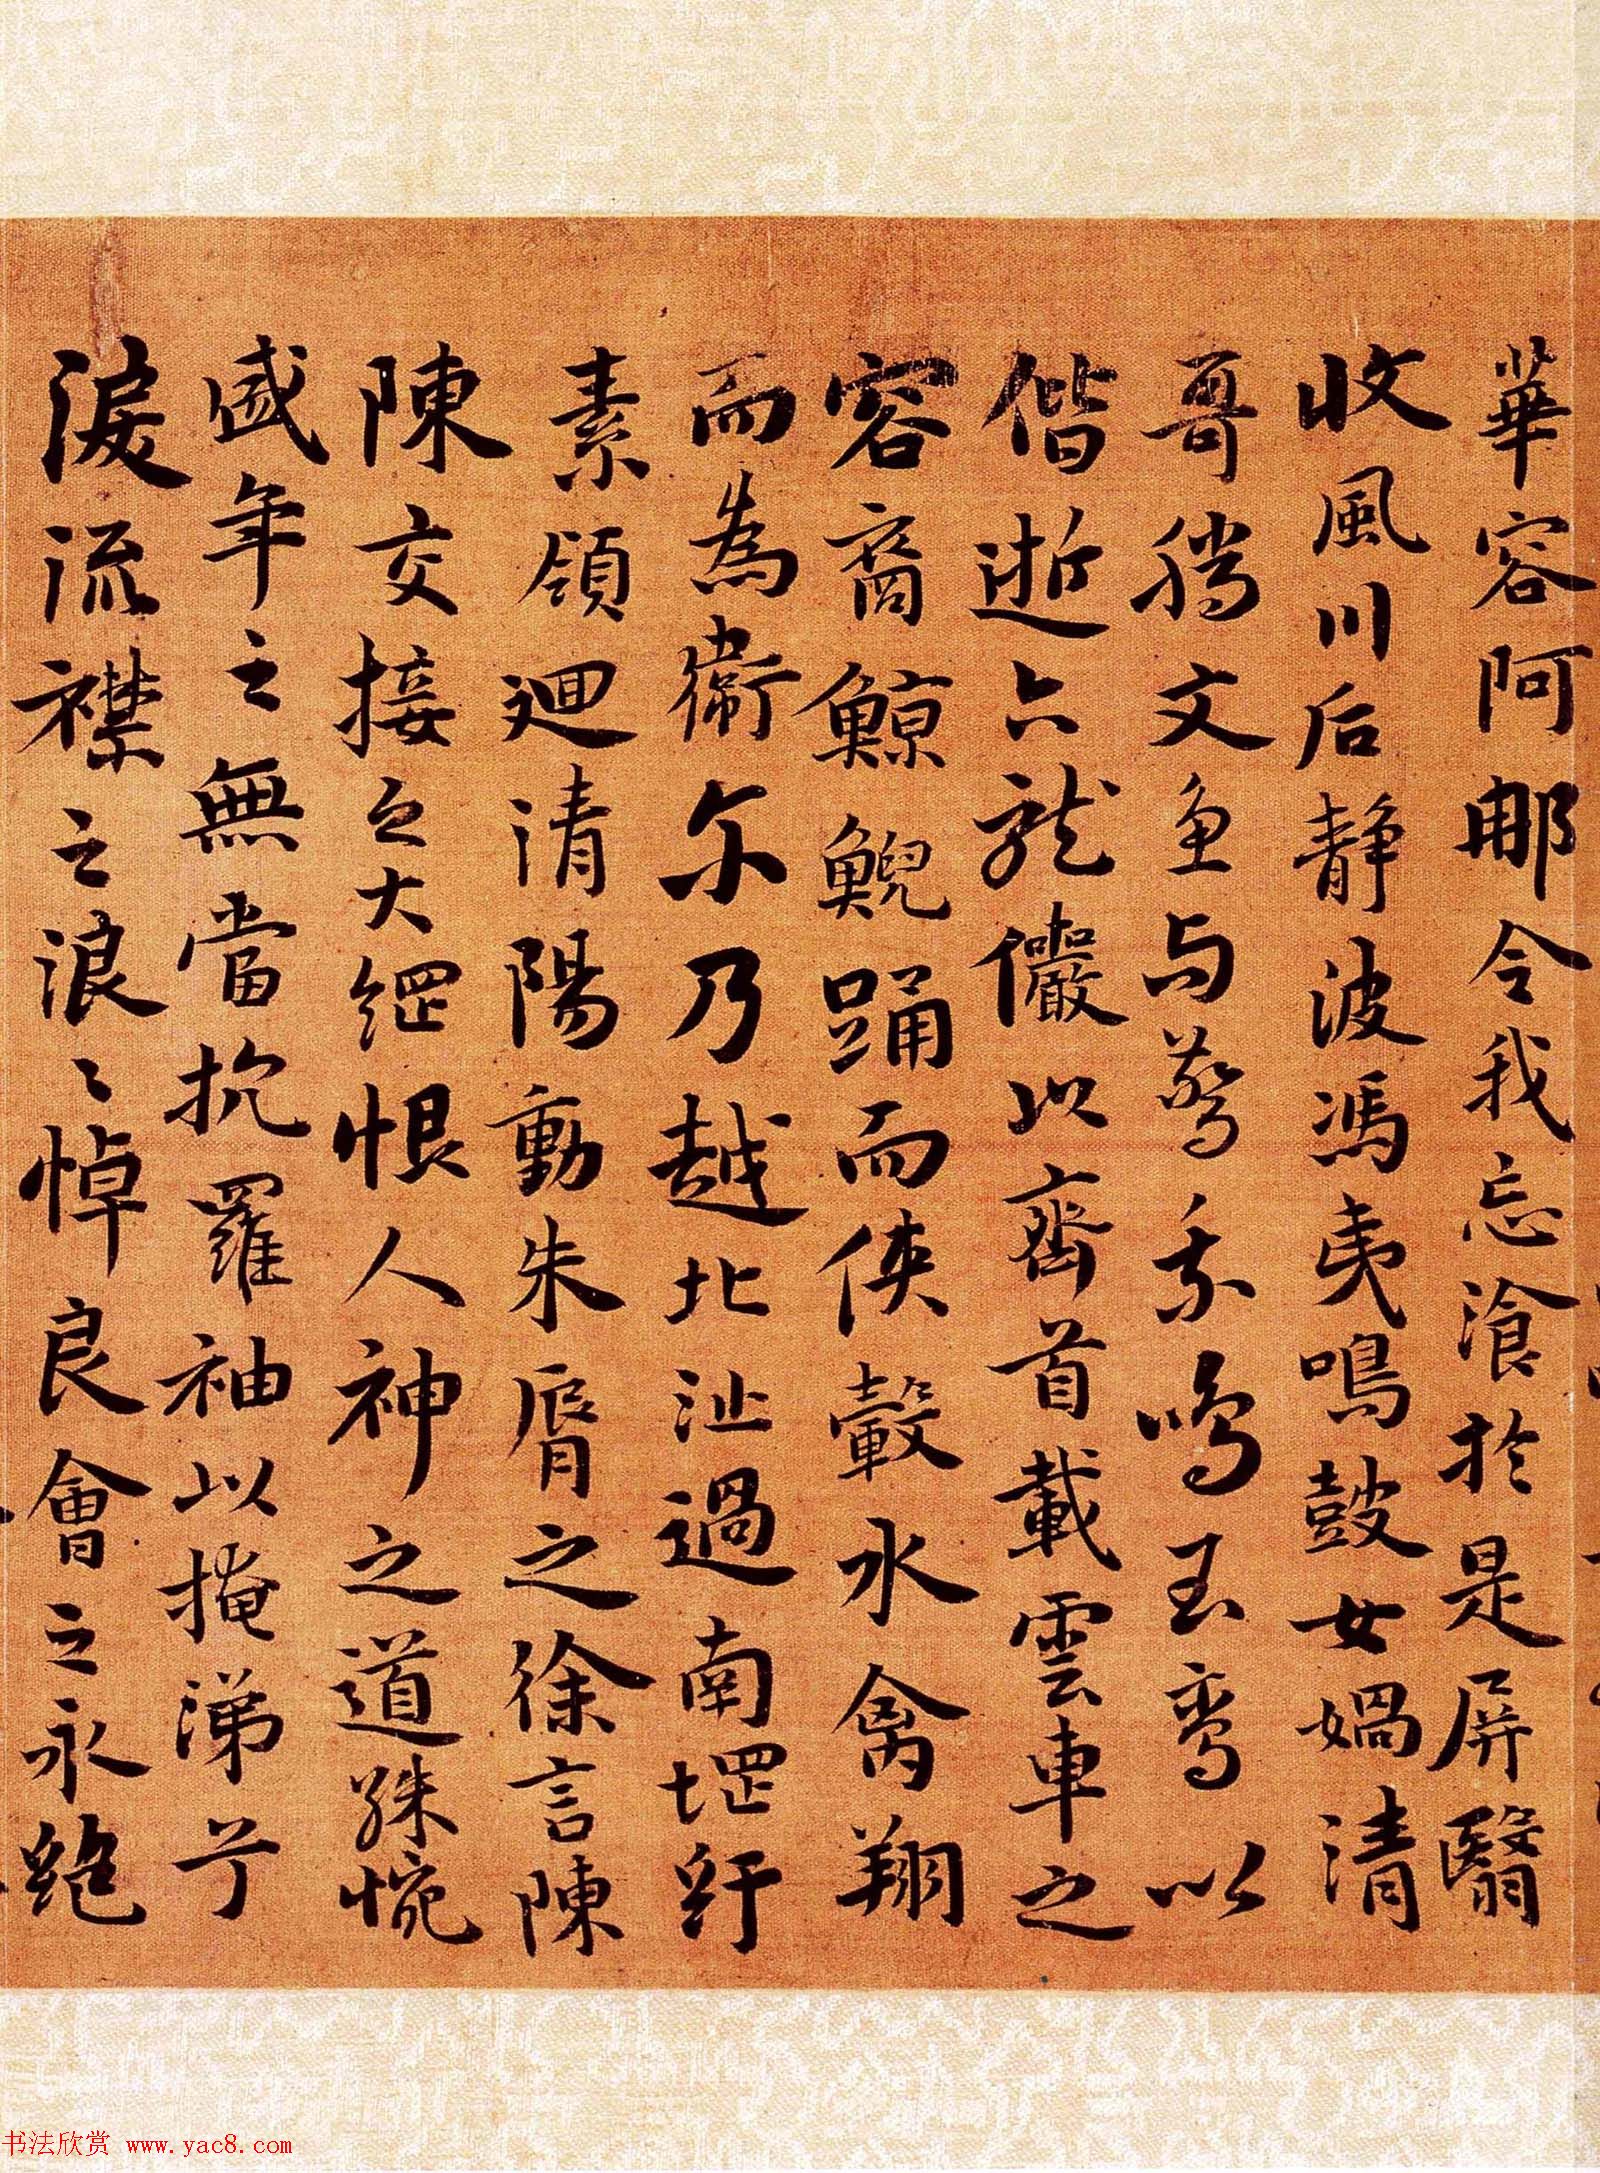 華容阿那令我忘湌於是屏翳
收風川后静波馮夷鳴鼓女媧清
哥騰文魚与警乘鳴玉鸞以
偕逝六龍儼以齊首載雲車之
容裔鯨鯢踊而俠轂水禽翔
而為衞尓乃越北沚過南堽紆
素領迴清陽動朱脣之徐言陳
陳交接之大綱恨人神之道殊惋
盛年之無當抗羅袖以掩涕兮
淚流襟之浪〻悼良會之永絕
书法欣赏 www.yac8.com